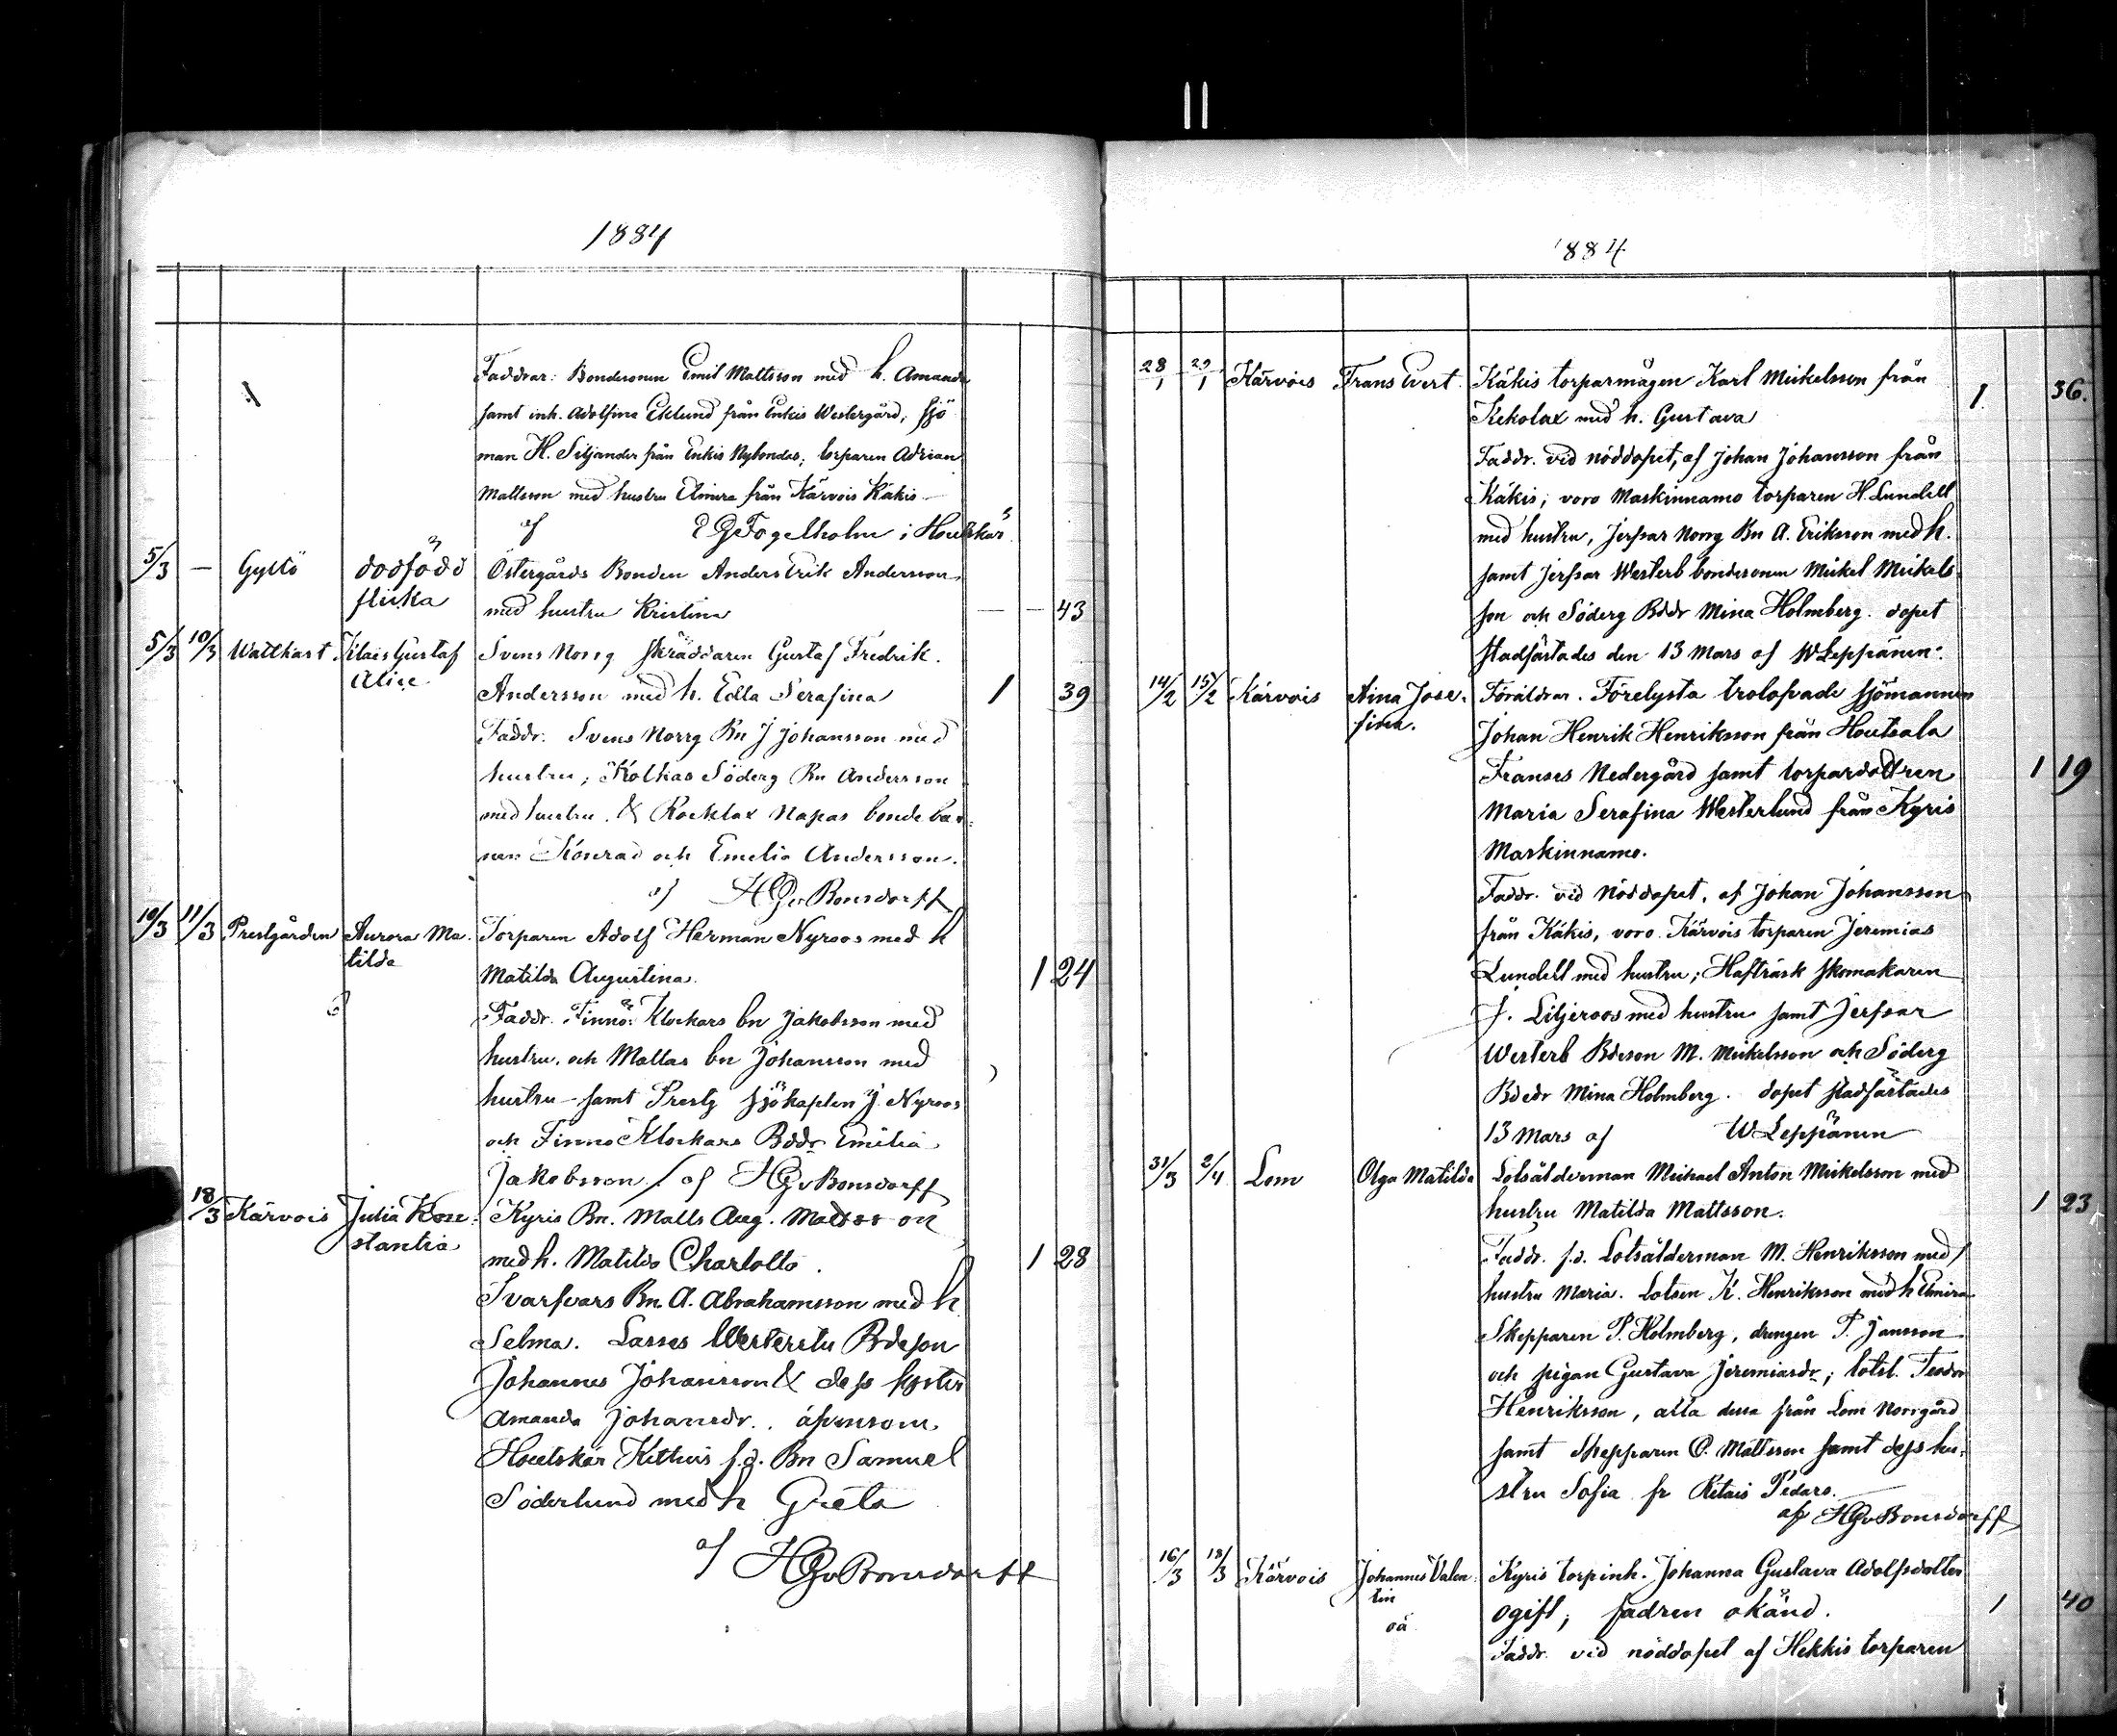 1884
Faddrar: Bondesonen Emil Mattsson med h. Amanda
samt inh. Adolfina Eklund från Enkis Westergård, sjö
man H. Siljander från Enkis Nybondas; torparen Adrian
Mattsson med hustru Elmira från Kärvois Käkis
af E G Fogelholm i Houtskär
5/3 — Gyttö dödfödd Östergårds Bonden Anders Erik Andersson
flicka med hustru Kristina — — 43
5/3 10/3 Wattkast Klais Gustaf Svens Norrg skräddaren Gustaf Fredrik
Alice Andersson med h. Edla Serafina 1 39
Faddr. Svens Norrg Bn J Johansson med
hustru; Kolkas Söderg Bn Andersson
med hustru. & Rocklax Napas bonde bar-
nen Konrad och Emelia Andersson.
af HGvBonsdorff
10/3 11/3 Prestgården Aurora Ma- Torparen Adolf Herman Nyroos med h
tilda Matilda Augustina. 1 24
Faddr. Finnö: Klockars bn Jakobsson med
hustru, och Mattas bn Johansson med
hustru – samt Prestg sjökapten J. Nyroos
och Finnö Klockars Bddr Emilia
Jakobsson / af HGvBonsdorff
18/3 Kärvois Julia Kon- Kyris Bn. Matts Aug. Mattsson
stantia med h. Matilda Charlotta. 1 28
Svarfvars Bn A. Abrahamsson med h
Selma. Lasses Westerstu Bdeson
Johannes Johansson & dess syster
Amanda Johansdr. äfvensom
Houtskär Kittuis f.d. Bn Samuel
Söderlund med h Greta
af HGvBonsdorff
1884
28/1 29/1 Kärvois Frans Evert. Käkis torparmågen Karl Mickelsson från 1. 36.
Kekolax med h. Gustava
Faddr. vid nöddopet, af Johan Johansson från
Käkis, voro Maskinnamo torparen H. Lundell
med hustru, Jerfsar Norrg Bn A. Eriksson med h.
samt Jerfsar Westerb bondesonen Mickel Mickels
son och Söderg Bddr Mina Holmberg. dopet
stadfästades den 13 Mars af W Leppänen.
14/2 15/2 Kärvois Aina Jose- Föräldrar. Förelysta trolofvade sjömannen
fina. Johan Henrik Henriksson från Houtsala
Franses Nedergård samt torpardottren 1 19
Maria Serafina Westerlund från Kyris
Maskinnamo.
Faddr. vid Nöddopet, af Johan Johansson
från Käkis, voro. Kärvois torparen Jeremias
Lundell med hustru; Hafträsk skomakaren
J. Liljeroos med hustru samt Jerfsar
Westerb Bdeson M. Mickelsson och Söderg
Bdedr Mina Holmberg. dopet stadfästades
13 Mars af W Leppänen
31/3 2/4 Lom Olga Matilda Lotsålderman Michael Anton Mickelsson med
hustru Matilda Mattsson. 1 23
Faddr. f.d. Lotsålderman M. Henriksson med
hustru Maria. Lotsen K. Henriksson med h Elmira
Skepparen P. Holmberg, drengen P. Jansson
och pigan Gustava Jeremiasdr; lotsl. Teodor
Henriksson, alla dessa från Lom Norrgård
samt Skepparen C. Mattsson samt dess hu-
stru Sofia fr Kitais Pedars.
af HGvBonsdorff
16/3 18/3 Kärvois Johannes Valen- Kyris torpinh. Johanna Gustava Adolfsdotter
tin ogift; fadren okänd. 1 40
oä
Faddr. vid nöddopet af Hekkis torparen